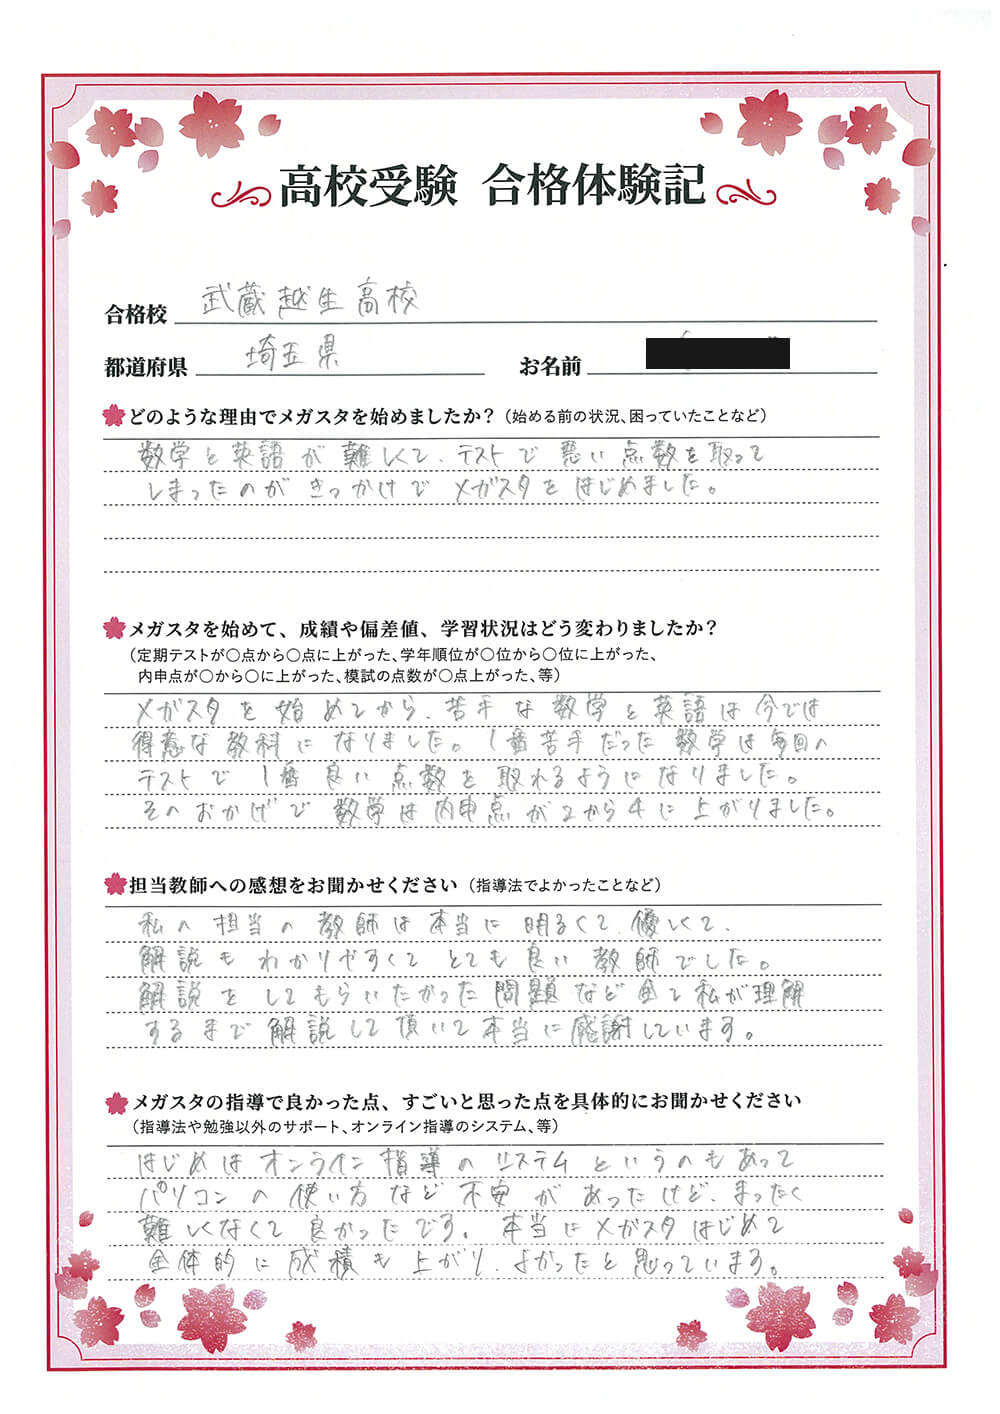 高校受験 合格体験記
合格校 武蔵越生高校
都道府県 埼玉県 お名前
どのような理由でメガスタを始めましたか？（始める前の状況、困っていたことなど）
数学と英語が難しくて、テストで悪い点数を取って
しまったのがきっかけでメガスタをはじめました。
メガスタを始めて、成績や偏差値、学習状況はどう変わりましたか？
（定期テストが〇点から〇点に上がった、学年順位が〇位から〇位に上がった、
内申点が〇から〇に上がった、模試の点数が〇点上がった、等）
メガスタを始めてから、苦手な数学と英語は今では
得意な教科になりました。1番苦手だった数学は毎回の
テストで1番良い点数を取れるようになりました。
そのおかげで数学は内申点が2から4に上がりました。
担当教師への感想をお聞かせください（指導法でよかったことなど）
私の担当の教師は本当に明るくて、優しくて、
解説もわかりやすくてとても良い教師でした。
解説をしてもらいたかった問題など全て私が理解
するまで解説して頂いて本当に感謝しています。
メガスタの指導で良かった点、すごいと思った点を具体的にお聞かせください
（指導法や勉強以外のサポート、オンライン指導のシステム、等）
はじめはオンライン指導のシステムというのもあって
パソコンの使い方など不安があったけど、まったく
難しくなくて良かったです。本当にメガスタはじめて
全体的に成積も上がり、よかったと思っています。